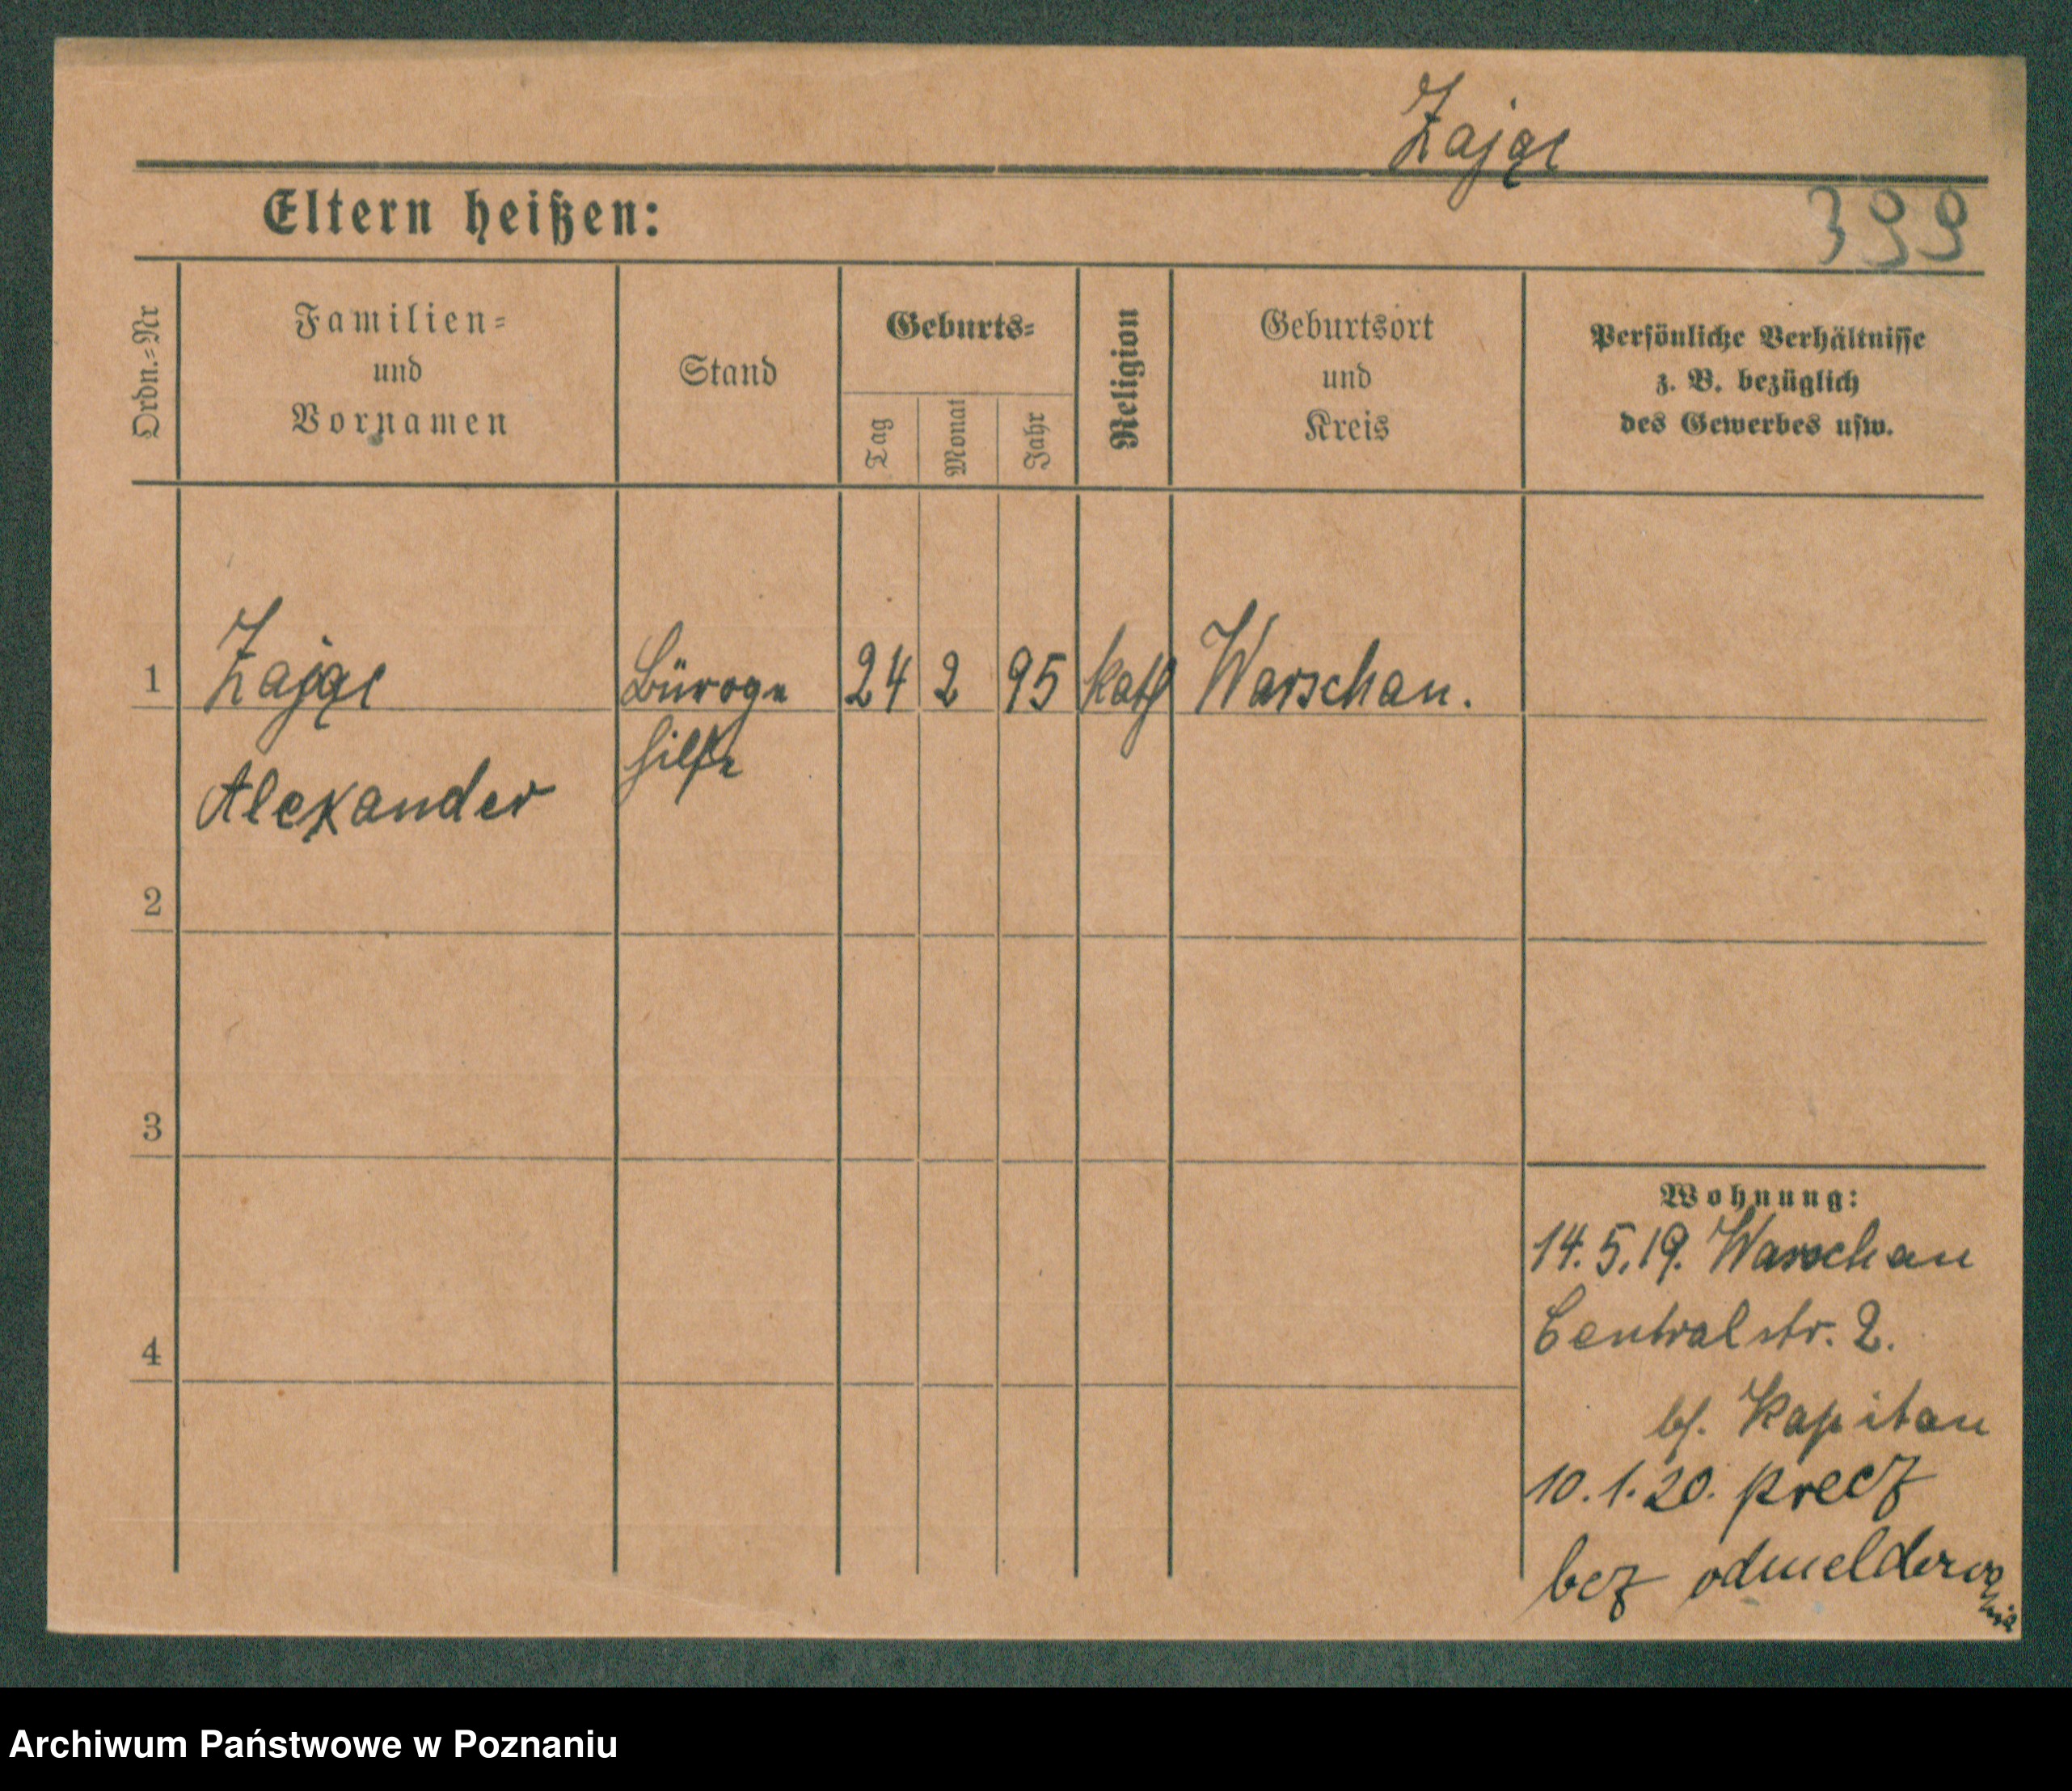 Zając
Eltern heißen:
399
Ordn.-Nr
Familien-
und
Vornamen
Stand
Geburts-
Tag
Monat
Jahr
Religion
Geburtsort
und
Kreis
Persönliche Verhältnisse
z. B. bezüglich
des Gewerbes usw.
1 Zając Büroge 24 2 95 kath Warschau.
hilfe
Alexander
2
3
4
Wohnung:
14.5.19. Warschau
Centralstr. 2.
bf. Kapitan
10.1.20. precz
bez odmeldowania
Archiwum Państwowe w Poznaniu